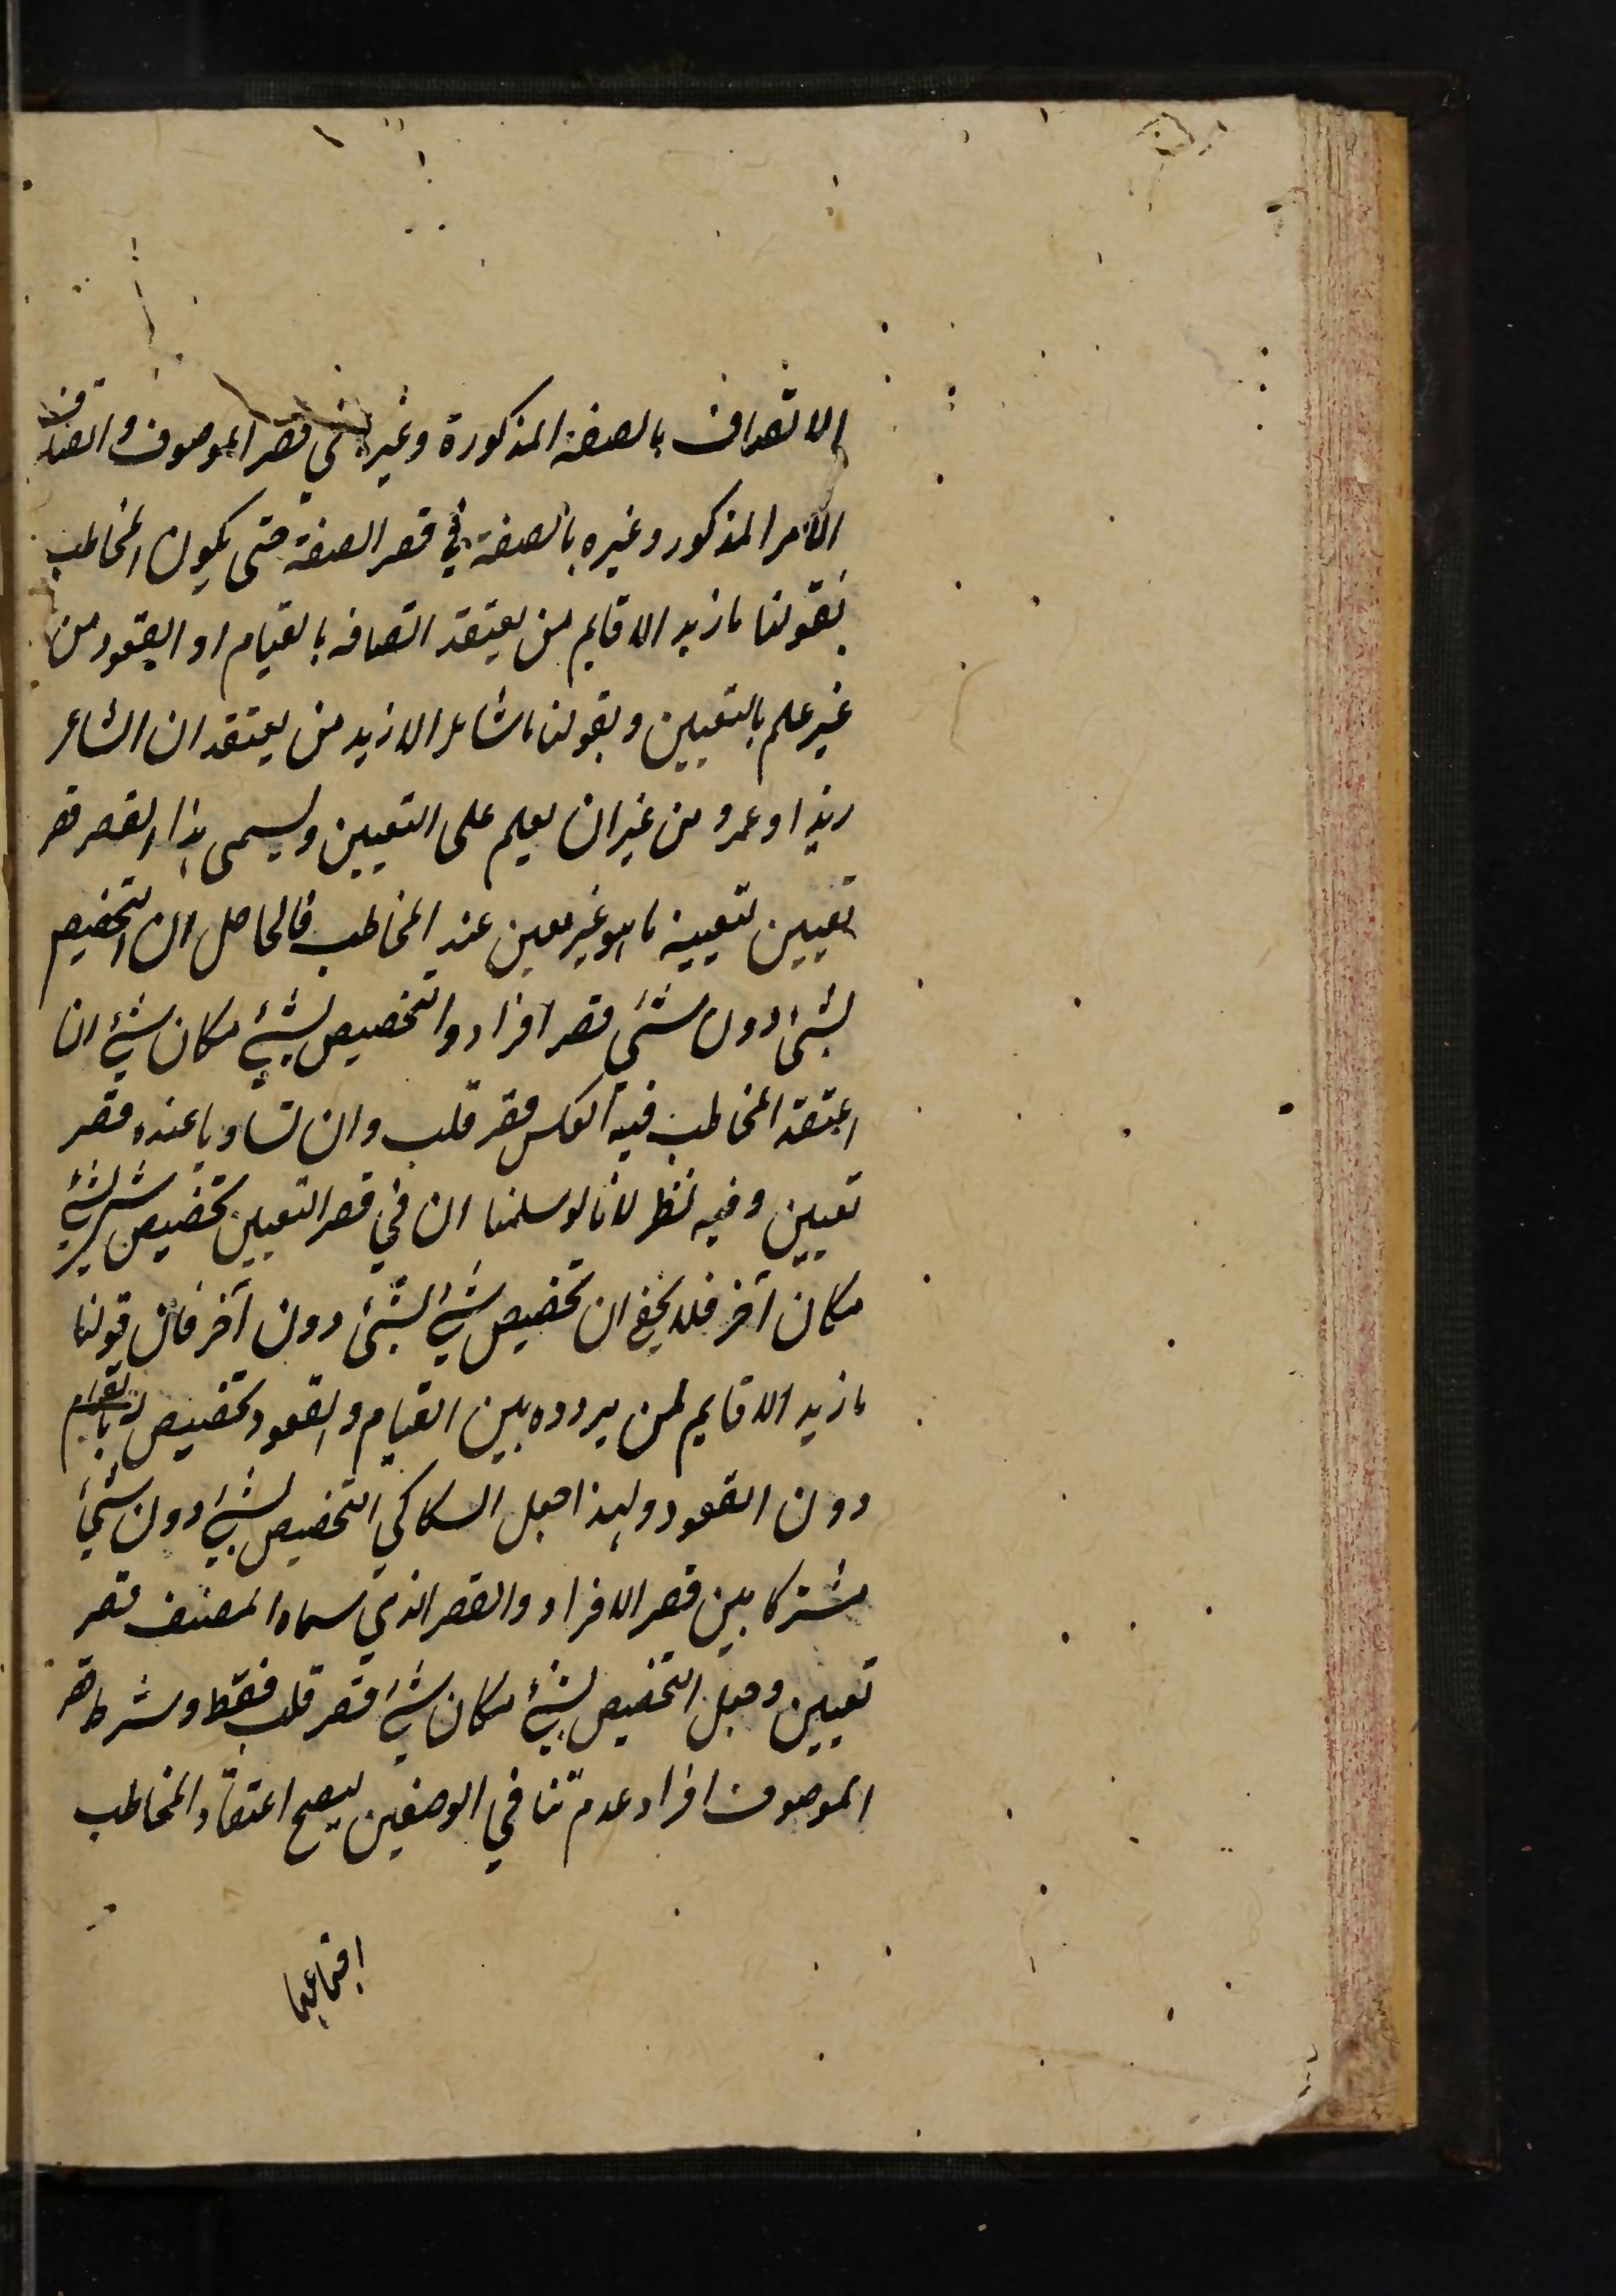 الاتصاف بالصفة المذكورة وغيرها في قصر الموصوف واتصاف
الامر المذكور وغيره بالصفة في قصر الصفة حتى يكون المخاطب
بقولنا ما زيد الا قايم من يعتقد اتصافه بالقيام او القعود من
غير علم بالتعيين وبقولنا ما شاعر الا زيد من يعتقد ان الشاعر
زيد او عمرو من غير ان يعلم على التعيين ويسمى هذا القصر قصر
تعيين لتعيينه ما هو غير معين عند المخاطب فالحاصل ان التخصيص
بشئ دون شئ قصر افراد والتخصيص بشئ مكان شئ ان
اعتقد المخاطب فيه العكس قصر قلب وان تساويا عنده قصر
تعيين وفيه نظر لانا لو سلمنا ان في قصر التعيين تخصيص شئ بشئ
مكان آخر فلا يخفى ان تخصيص شئ بشئ دون آخر فان قولنا
ما زيد الا قايم لمن يردده بين القيام والقعود تخصيص له بالقيام
دون القعود ولهذا جعل السكاكي التخصيص بشئ دون شئ
مشتركا بين قصر الافراد والقصر الذي سماه المصنف قصر
تعيين وجعل التخصيص بشئ مكان شئ قصر قلب فقط وشرط قصر
الموصوف افراد عدم تنافي الوصفين ليصح اعتقاد المخاطب
اجتماعهما